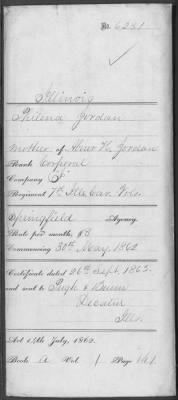 No. 6231
Illinois
Philena Jordan
Mother of Abur H. Jordan
Rank Corporal
Company "F"
Regiment 7th Ills Cav. Vols.
Springfield Agency.
Rate per month, $8
Commencing 30th May, 1862
Certificate dated 26th Sept, 1863.
and sent to Pugh & Bunn
Decatur
Ills.
Act 14th July, 1862.
Book A Vol. 1 Page 141